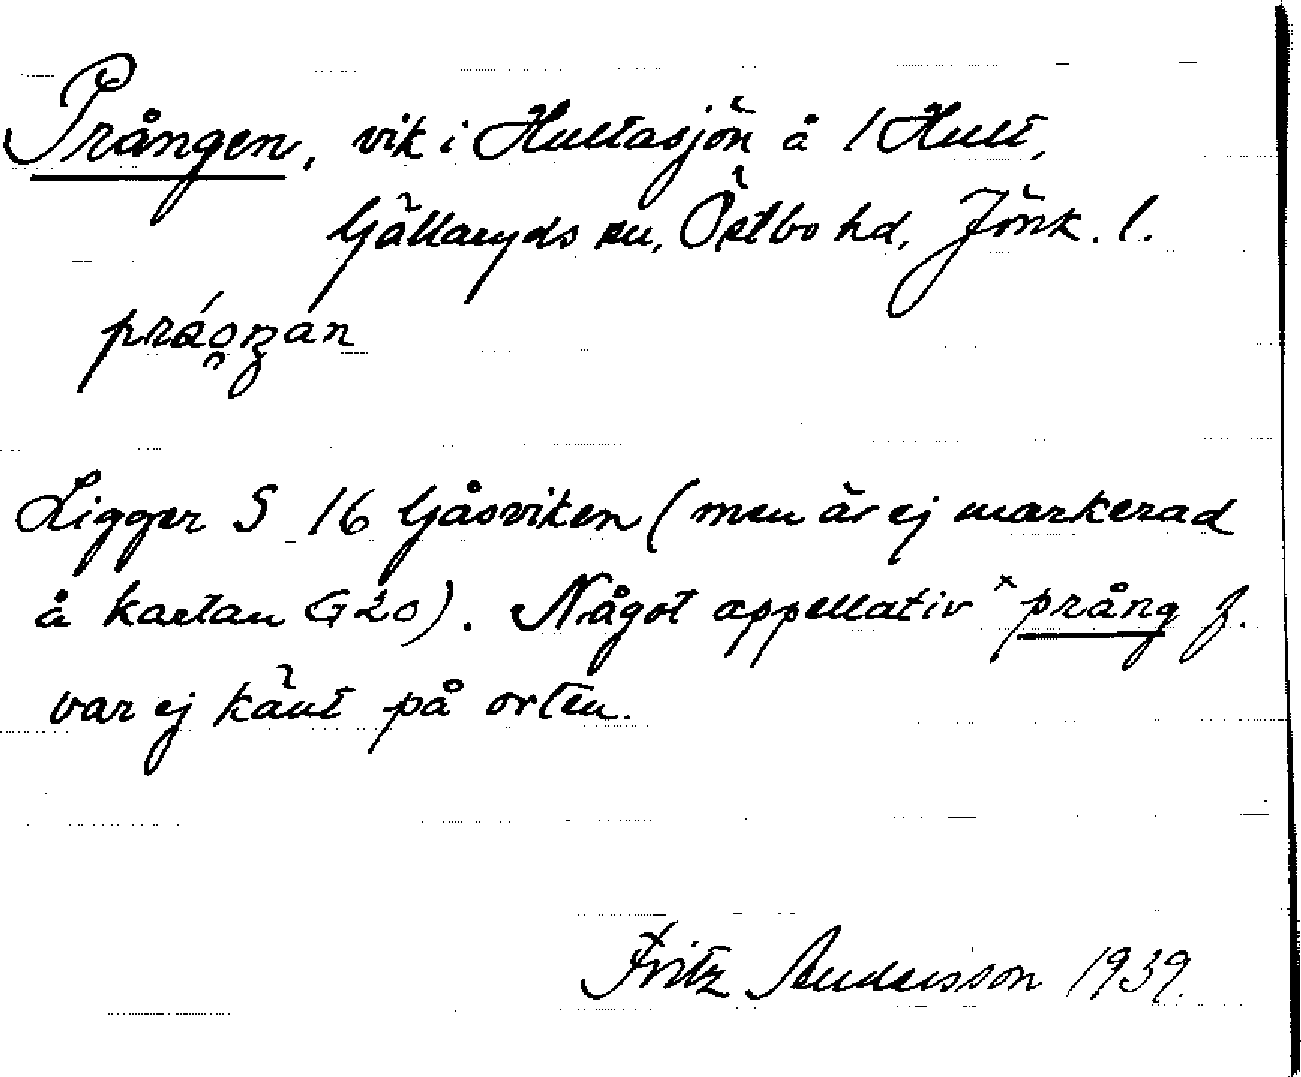 Prången, vik i Hultasjön å 1 Hult,
Gällaryds sn, Östbo hd, Jönk. l.
Ligger S 16 Gåsviken (men är ej markerad
å kartan G20). Något appellativ ^prång f.
var ej känt på orten.
Fritz Andersson 1939.